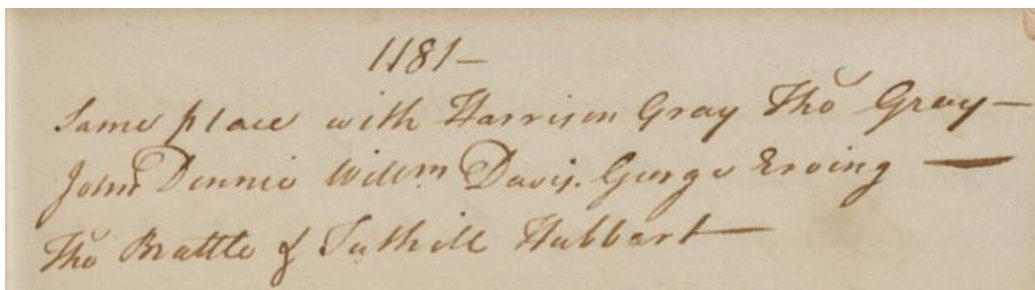 1181—
Same place with Harrison Gray Tho Gray—
John Dennie Willm Davis. George Erving —
Tho Brattle & Tuthill Hubbart—